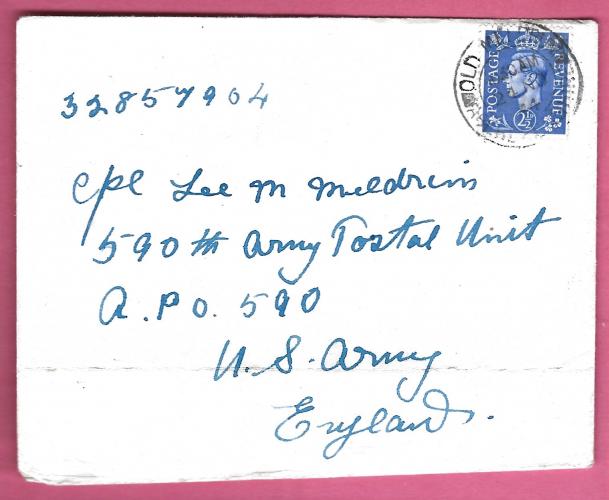 32857904
Cpl Lee M Meldrim
590th Army Postal Unit
A.P.O. 590
U.S. Army
England.
OLD
POSTAGE
REVENUE
2½D